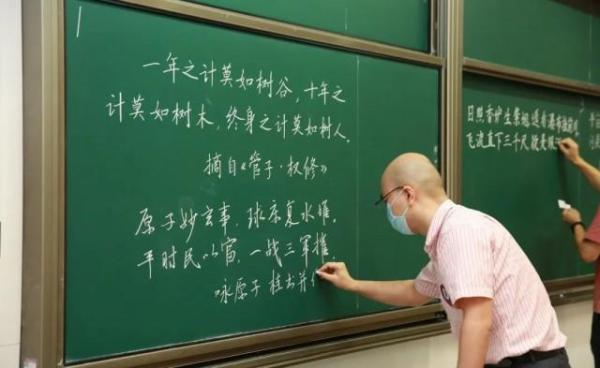 一年之计莫如树谷，十年之
计莫如树木，终身之计莫如树人。
摘自《管子·权修》
原子妙玄事，球床复水堆。
平时民以富，一战三军摧。
咏原子 桂出并
日照香炉生紫烟遥看瀑布挂前川
飞流直下三千尺疑是银